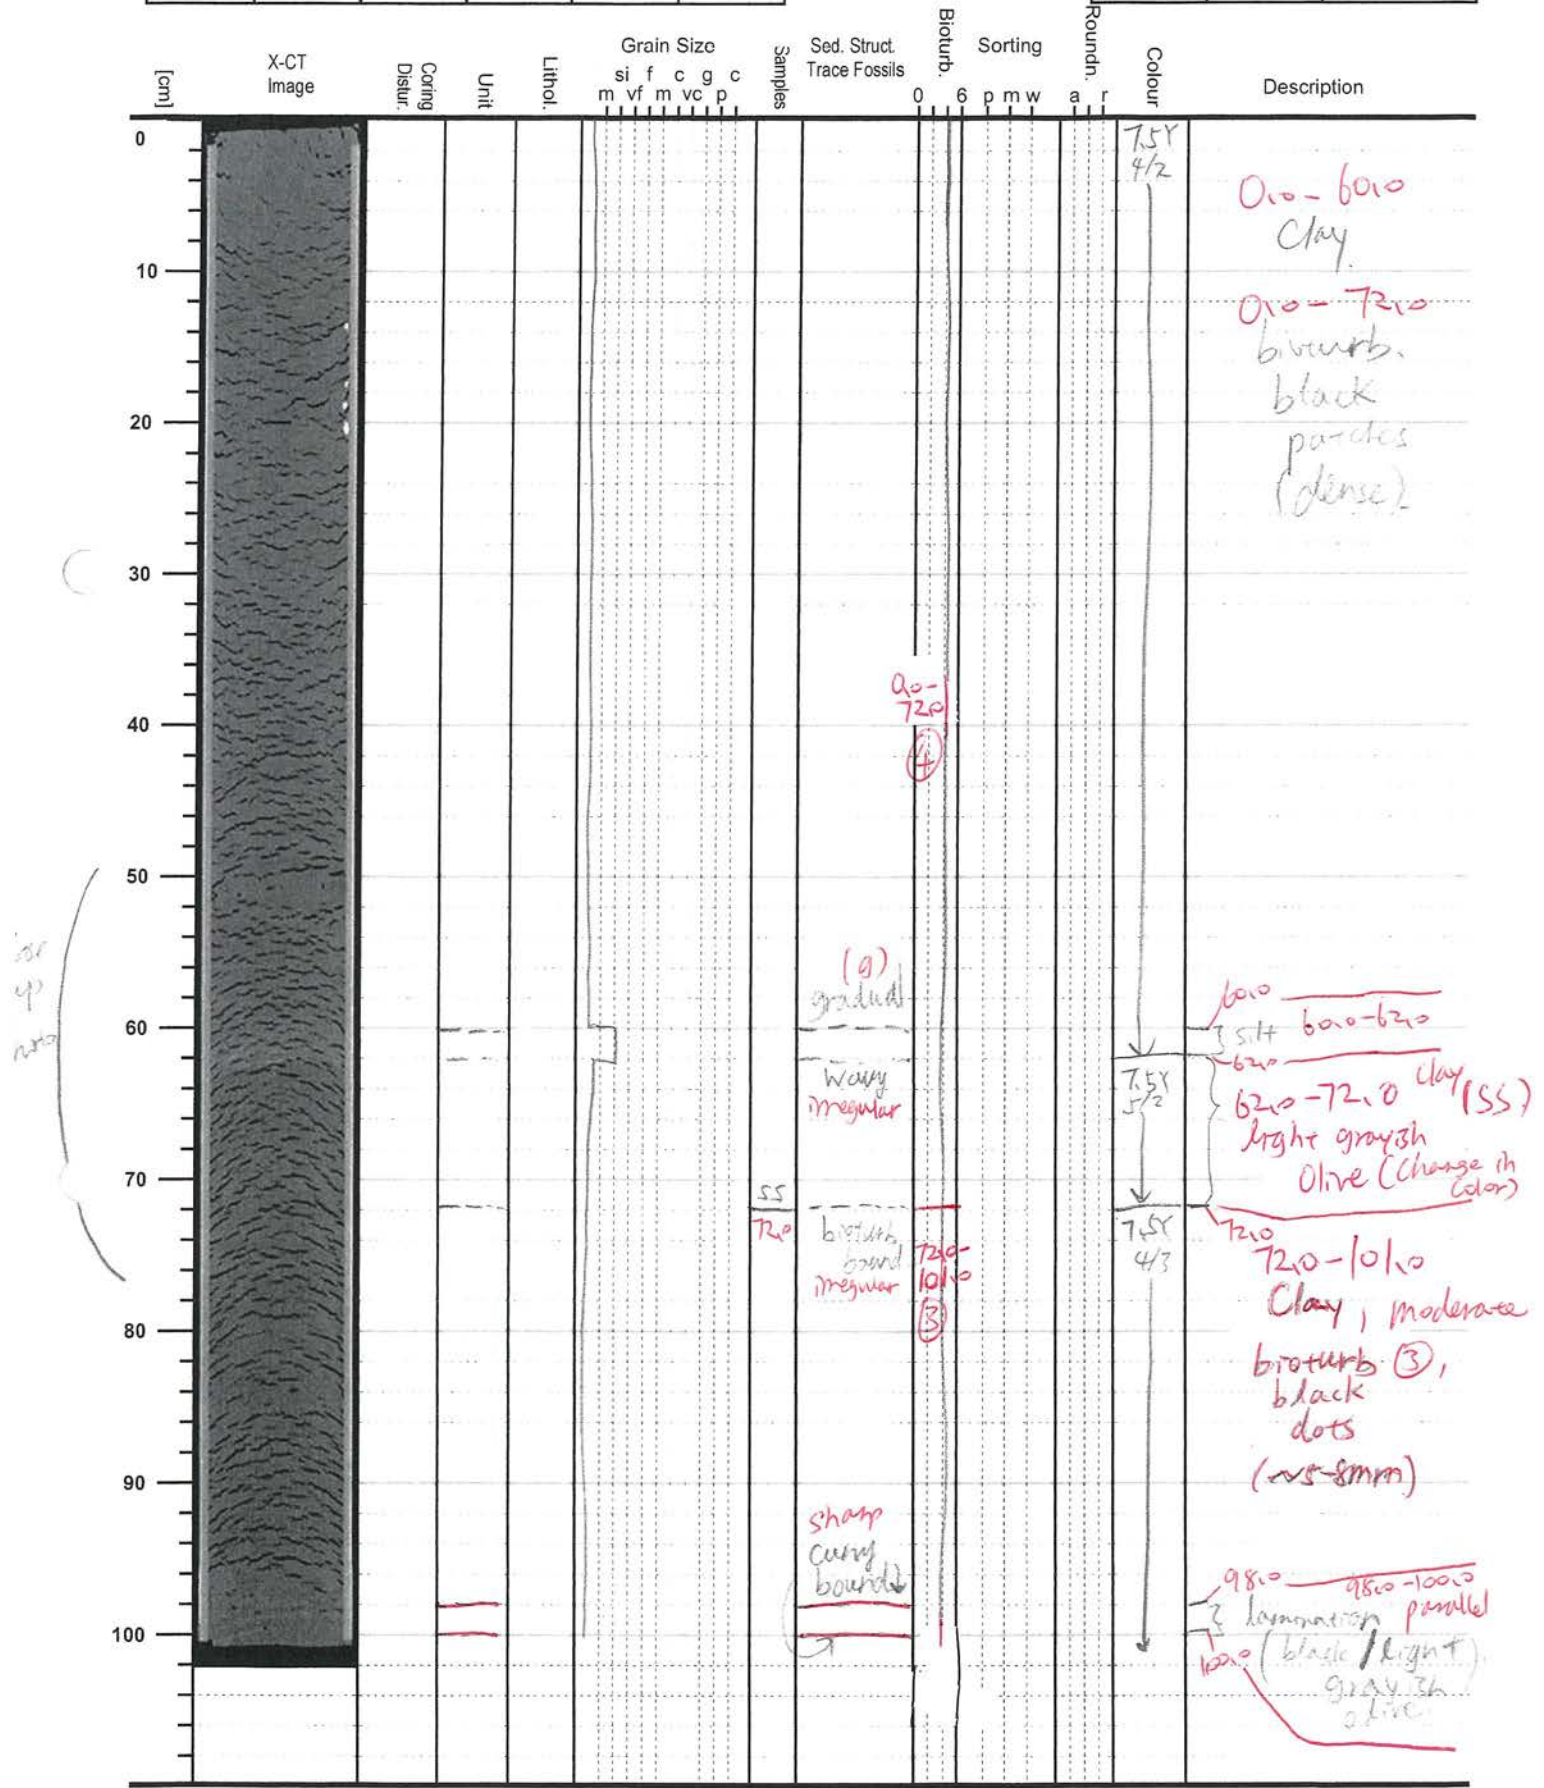 [cm]
X-CT
Image
Coring
Distur.
Unit
Lithol.
Grain Size
si f c g c
m vf m vc p
Samples
Sed. Struct.
Trace Fossils
Bioturb.
0 6
Sorting
p m w
Roundn.
a r
Colour
Description
0
7.5Y
4/2
0.0-60.0
Clay
10
0.0-72.0
bioturb.
black
20
patches
(dense)
30
0.0-
72.0
40
④
50
(g)
gradual
60
60.0
60.0-62.0
silt
62.0
wavy
irregular
7.5Y
5/2
62.0-72.0 clay (SS)
light grayish
Olive (Change in
Color)
70
SS
72.0
bioturb.
bound
irregular
72.0-
101.0
③
7.5Y
4/3
72.0
72.0-101.0
Clay, moderate
80
bioturb ③,
black
dots
90
(~5-8mm)
sharp
curvy
bound
98.0
98.0-100.0
lamination parallel
100
100.0
(black/light
grayish
olive)